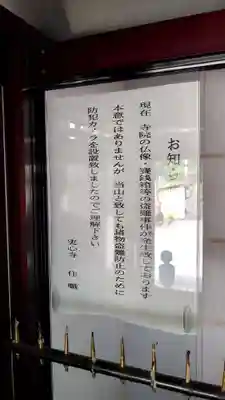 お知らせ
現在 寺院の仏像・賽銭箱等の盗難事件が発生致しております
本意ではありませんが 当山と致しても諸物盗難防止のために
防犯カメラを設置致しましたのでご理解下さい
実心寺 住職